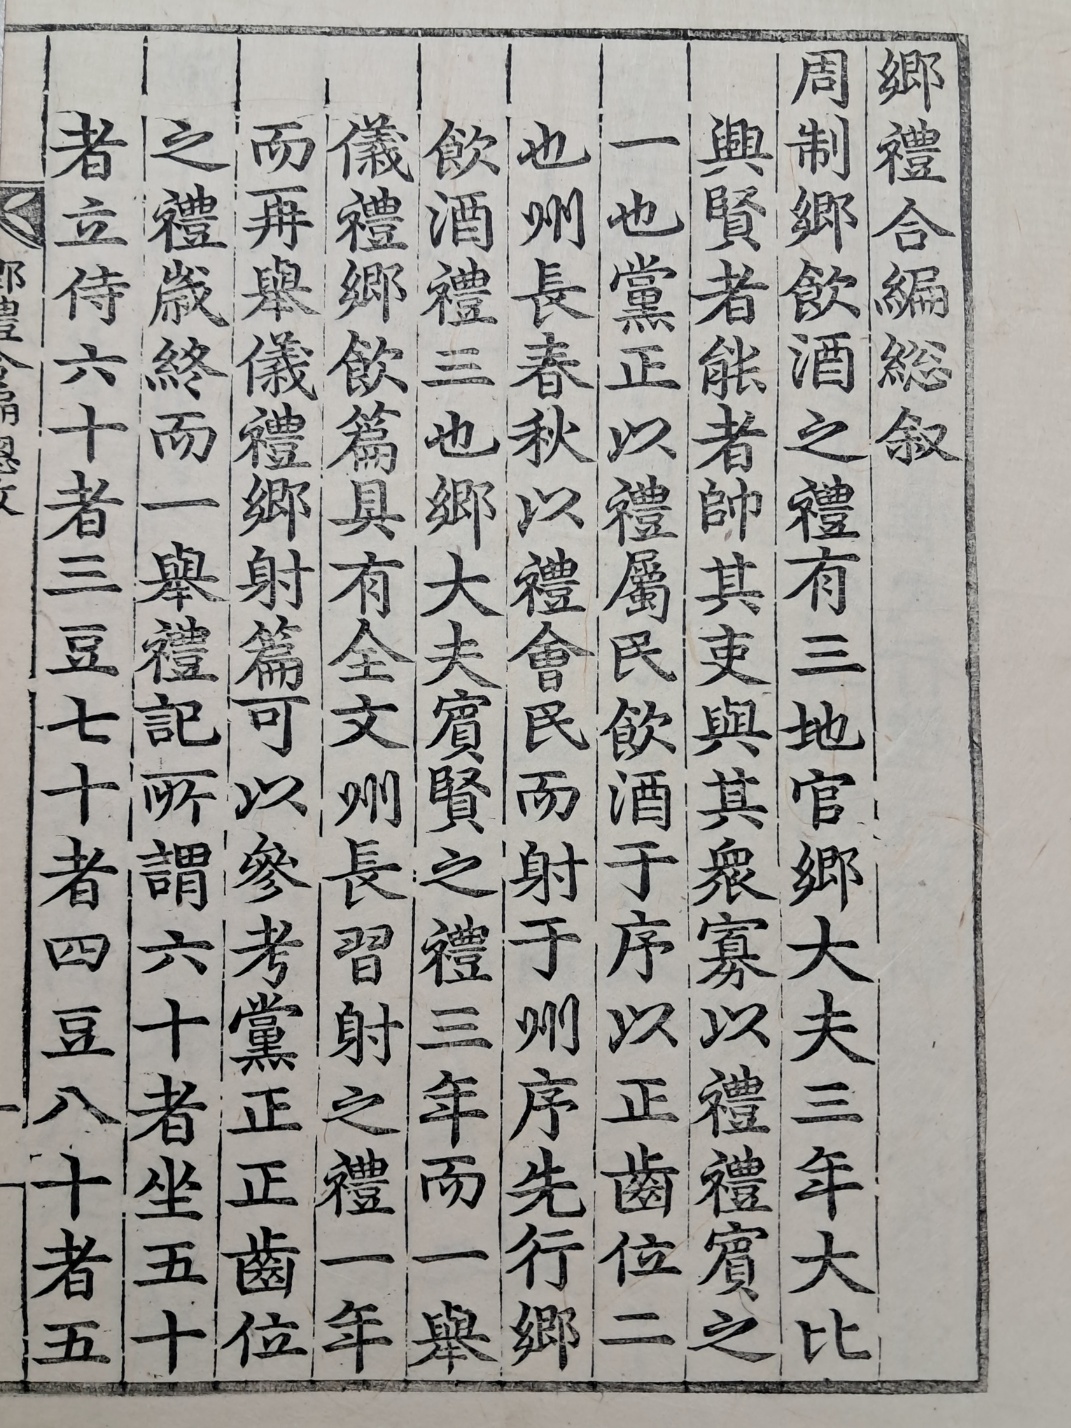 鄉禮合編総叙
周制鄉飲酒之禮有三地官鄉大夫三年大比
興賢者能者帥其吏與其衆寡以禮禮賓之
一也黨正以禮屬民飲酒于序以正齒位二
也州長春秋以禮會民而射于州序先行鄉
飲酒禮三也鄉大夫賓賢之禮三年而一舉
儀禮鄉飲篇具有全文州長習射之禮一年
而再舉儀禮鄉射篇可以參考黨正正齒位
之禮歲終而一舉禮記所謂六十者坐五十
者立侍六十者三豆七十者四豆八十者五